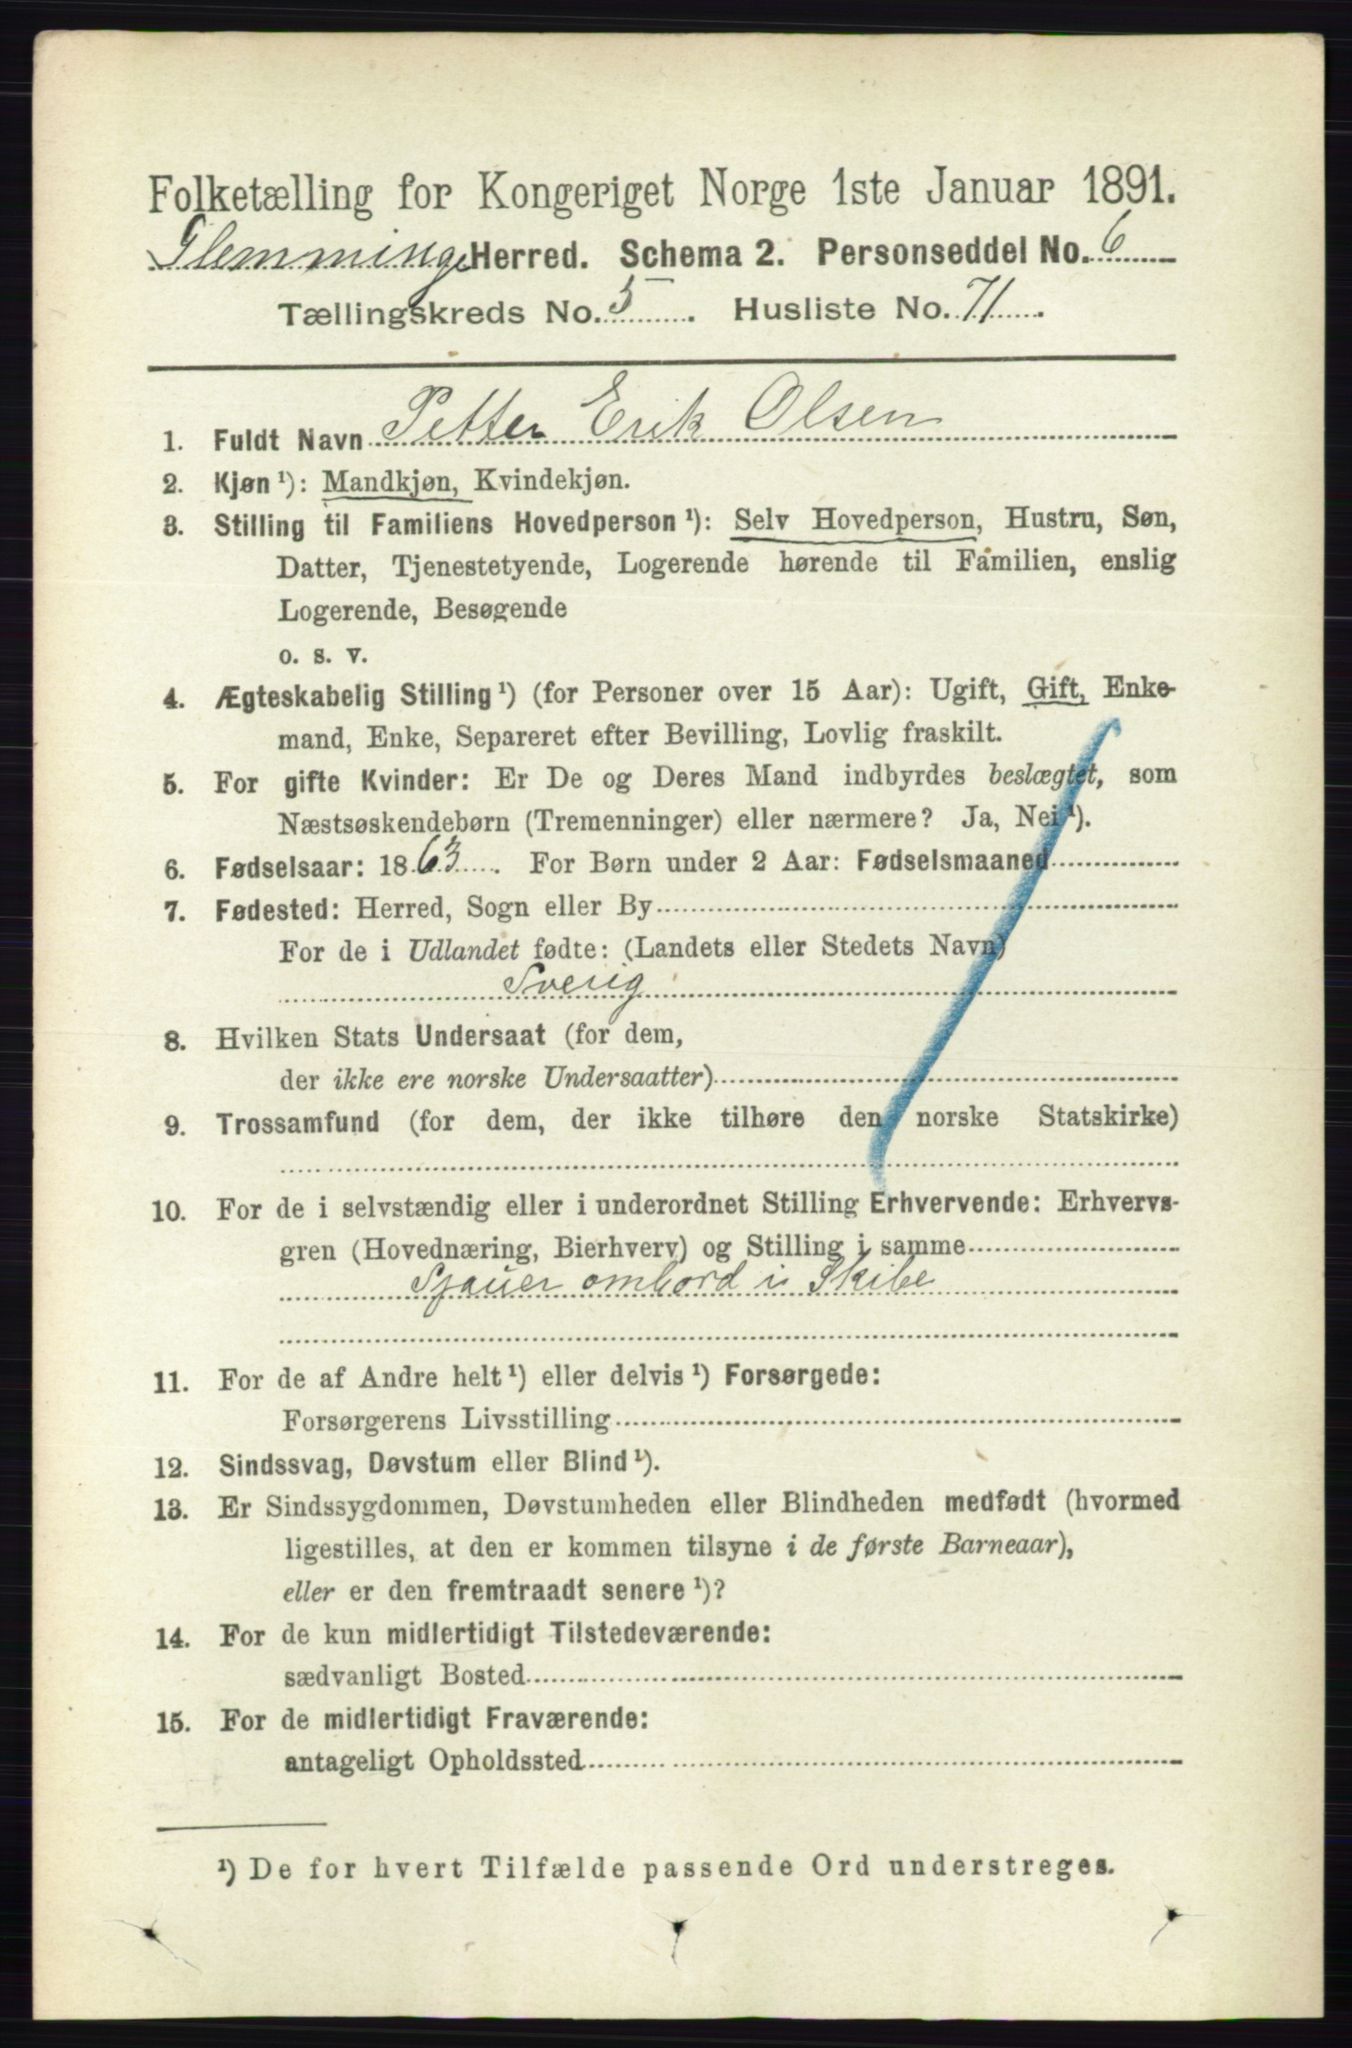 Folketælling for Kongeriget Norge 1ste Januar 1891.
Glemminge Herred. Schema 2. Personseddel No. 6
Tællingskreds No. 5. Husliste No. 71.
1. Fuldt Navn Petter Erik Olsen
2. Kjøn ¹): Mandkjøn, Kvindekjøn.
3. Stilling til Familiens Hovedperson ¹): Selv Hovedperson, Hustru, Søn,
Datter, Tjenestetyende, Logerende hørende til Familien, enslig
Logerende, Besøgende
o. s. v.
4. Ægteskabelig Stilling ¹) (for Personer over 15 Aar): Ugift, Gift, Enke-
mand, Enke, Separeret efter Bevilling, Lovlig fraskilt.
5. For gifte Kvinder: Er De og Deres Mand indbyrdes beslægtet, som
Næstsøskendebørn (Tremenninger) eller nærmere? Ja, Nei ¹).
6. Fødselsaar: 1863. For Børn under 2 Aar: Fødselsmaaned
7. Fødested: Herred, Sogn eller By
For de i Udlandet fødte: (Landets eller Stedets Navn)
Sverig
8. Hvilken Stats Undersaat (for dem,
der ikke ere norske Undersaatter)
9. Trossamfund (for dem, der ikke tilhøre den norske Statskirke)
10. For de i selvstændig eller i underordnet Stilling Erhvervende: Erhvervs-
gren (Hovednæring, Bierhverv) og Stilling i samme
Sjauer ombord i Skibe
11. For de af Andre helt ¹) eller delvis ¹) Forsørgede:
Forsørgerens Livsstilling
12. Sindssvag, Døvstum eller Blind ¹).
13. Er Sindssygdommen, Døvstumheden eller Blindheden medfødt (hvormed
ligestilles, at den er kommen tilsyne i de første Barneaar),
eller er den fremtraadt senere ¹)?
14. For de kun midlertidigt Tilstedeværende:
sædvanligt Bosted
15. For de midlertidigt Fraværende:
antageligt Opholdssted
¹) De for hvert Tilfælde passende Ord understreges.